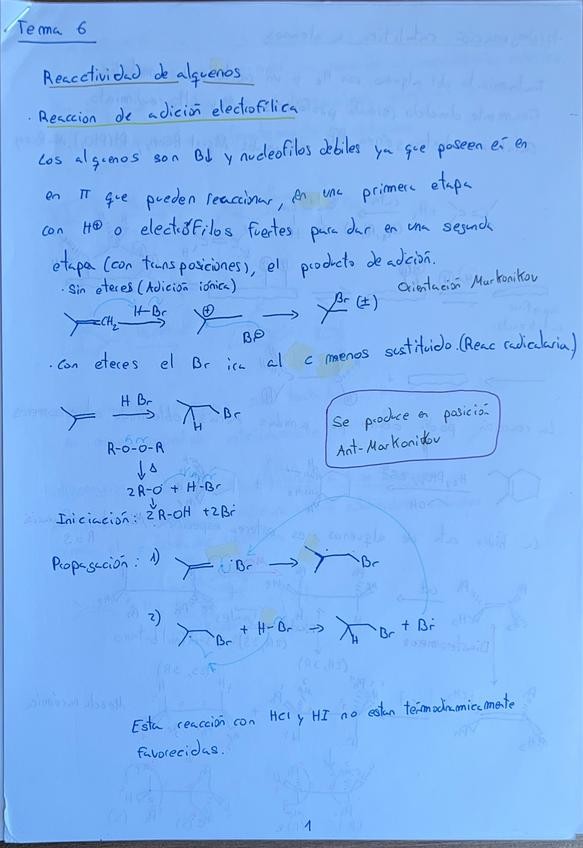 Tema 6
Reacctividad de alquenos
· Reaccion de adición electrofílica
Los alquenos son B↓ y nucleofilos debiles ya que poseen é en
en π que pueden reaccionar, en una primera etapa
con H⊕ o electrófilos fuertes para dar en una segunda
etapa (con transposiciones), el producto de adición.
· Sin eteres (Adición iónica)
Orientación Markonikov
CH₂ H-Br ⊕ Br⊖ Br (±)
· Con eteres el Br ira al c menos sustituido. (Reac radicalaria)
H Br
H Br
Se produce en posición
Ant-Markonikov
R-O-O-R
↓ Δ
2R-O + H-Br
Iniciación: 2R-OH + 2Br
Propagación: 1) ·Br → Br
2) Br + H-Br → H Br + Br
Esta reacción con HCl y HI no estan termodinamicamente
favorecidas.
1